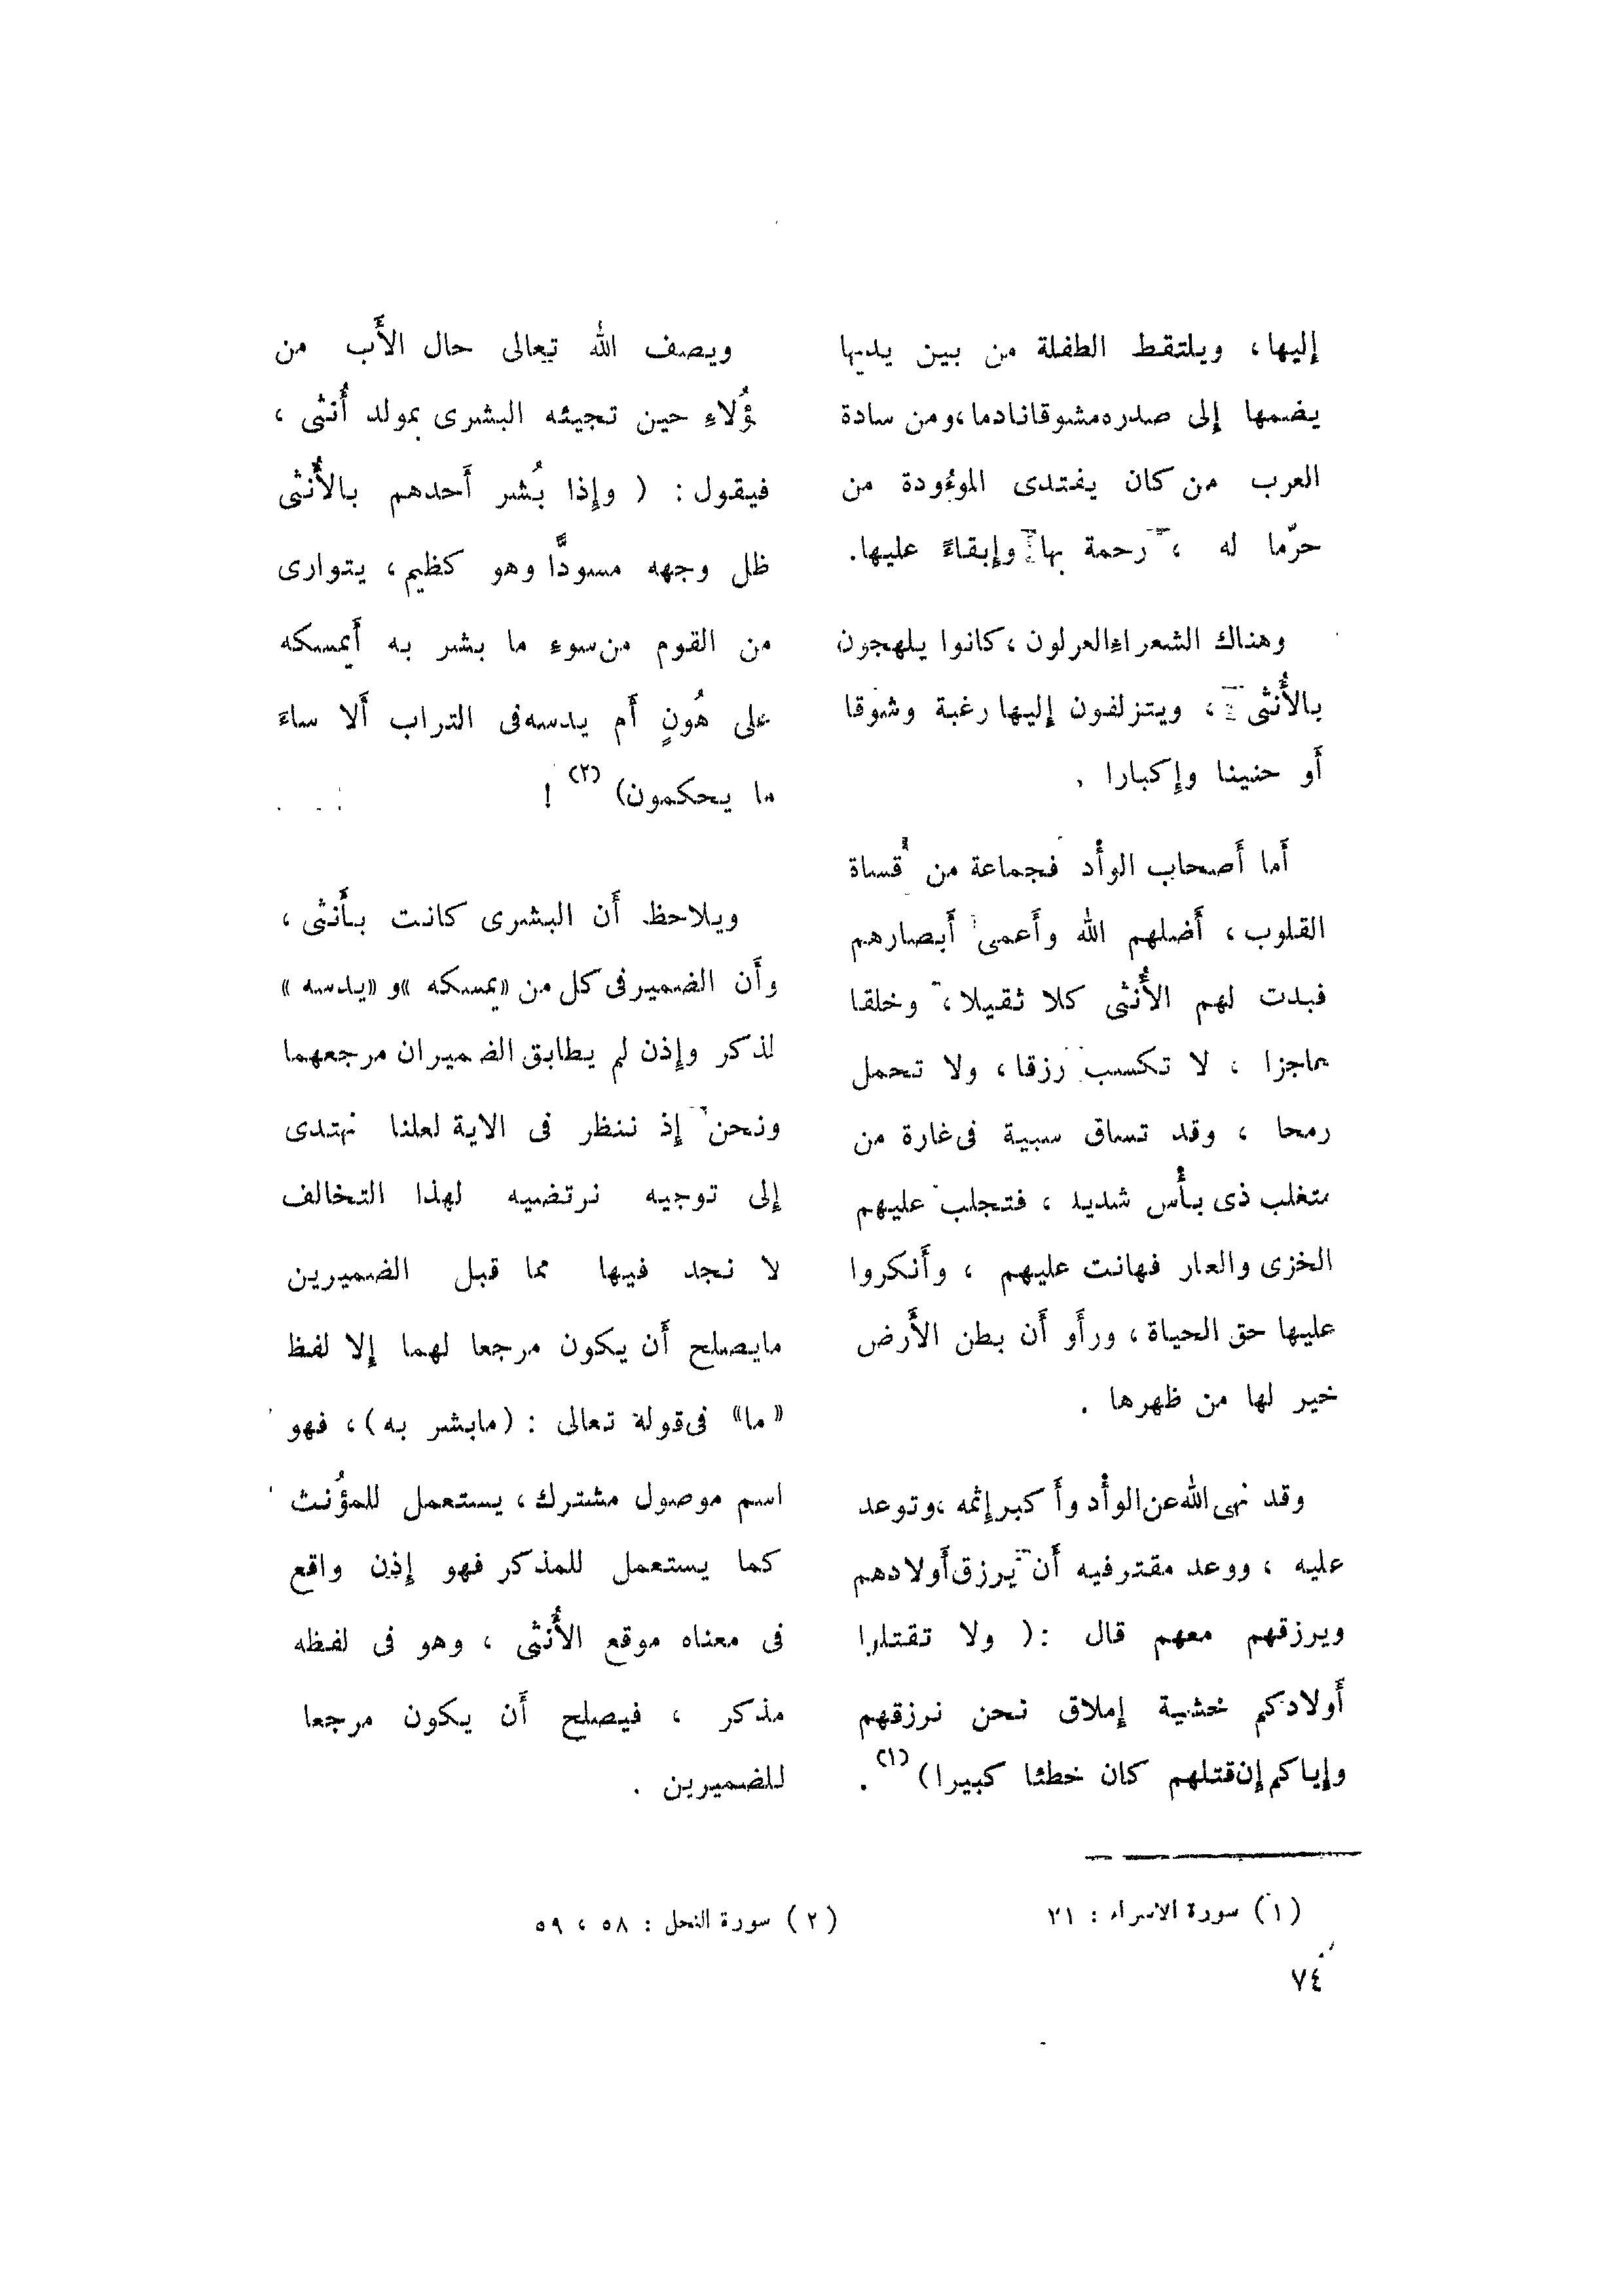 إليها، ويلتقط الطفلة من بين يديها
يضمها إلى صدره مشوقا نادما، ومن سادة
العرب من كان يفتدى الموءُودة من
حرّما له ، رحمة بها وإبقاءً عليها.
وهناك الشعراء العرلون ، كانوا يلهجون
بالأُنثى ، ويتزلفون إليها رغبة وشوقا
أَو حنينا وإكبارا .
أَما أَصحاب الوأْد فجماعة من قساة
القلوب ، أَضلهم الله وأَعمى أَبصارهم
فبدت لهم الأُنثى كلا ثقيلا ، وخلقا
عاجزا ، لا تكسب رزقا ، ولا تحمل
رمحا ، وقد تساق سبية فى غارة من
متغلب ذى بأْس شديد ، فتجلب عليهم
الخزى والعار فهانت عليهم ، وأَنكروا
عليها حق الحياة ، ورأَو أَن بطن الأَرض
خير لها من ظهرها .
وقد نهى الله عن الوأْد وأَكبر إثمه ، وتوعد
عليه ، ووعد مقترفيه أَن يرزق أَولادهم
ويرزقهم معهم قال : ( ولا تقتلوا
أَولادكم خشية إملاق نحن نرزقهم
وإياكم إن قتلهم كان خطئا كبيرا ) (١) .
ويصف الله تعالى حال الأَب من
ؤُلاءِ حين تجيئه البشرى بمولد أُنثى ،
فيقول : ( وإذا بُشر أَحدهم بالأُنثى
ظل وجهه مسودًّا وهو كظيم ، يتوارى
من القوم من سوء ما بشر به أَيمسكه
على هُونٍ أَم يدسه فى التراب أَلا ساءَ
ما يحكمون) (٢) !
ويلاحظ أَن البشرى كانت بأَنثى ،
وأَن الضمير فى كل من «يمسكه» و «يدسه»
لذكر وإذن لم يطابق الضميران مرجعهما
ونحن إذ ننظر فى الاية لعلنا نهتدى
إلى توجيه نرتضيه لهذا التخالف
لا نجد فيها مما قبل الضميرين
مايصلح أَن يكون مرجعا لهما إلا لفظ
«ما» فى قولة تعالى : (مابشر به) ، فهو
اسم موصول مشترك ، يستعمل للمؤُنث
كما يستعمل للمذكر فهو إذن واقع
فى معناه موقع الأُنثى ، وهو فى لفظه
مذكر ، فيصلح أَن يكون مرجعا
للضميرين .
(١) سورة الاسراء : ٣١
(٢) سورة النحل : ٥٨ ، ٥٩
٧٤